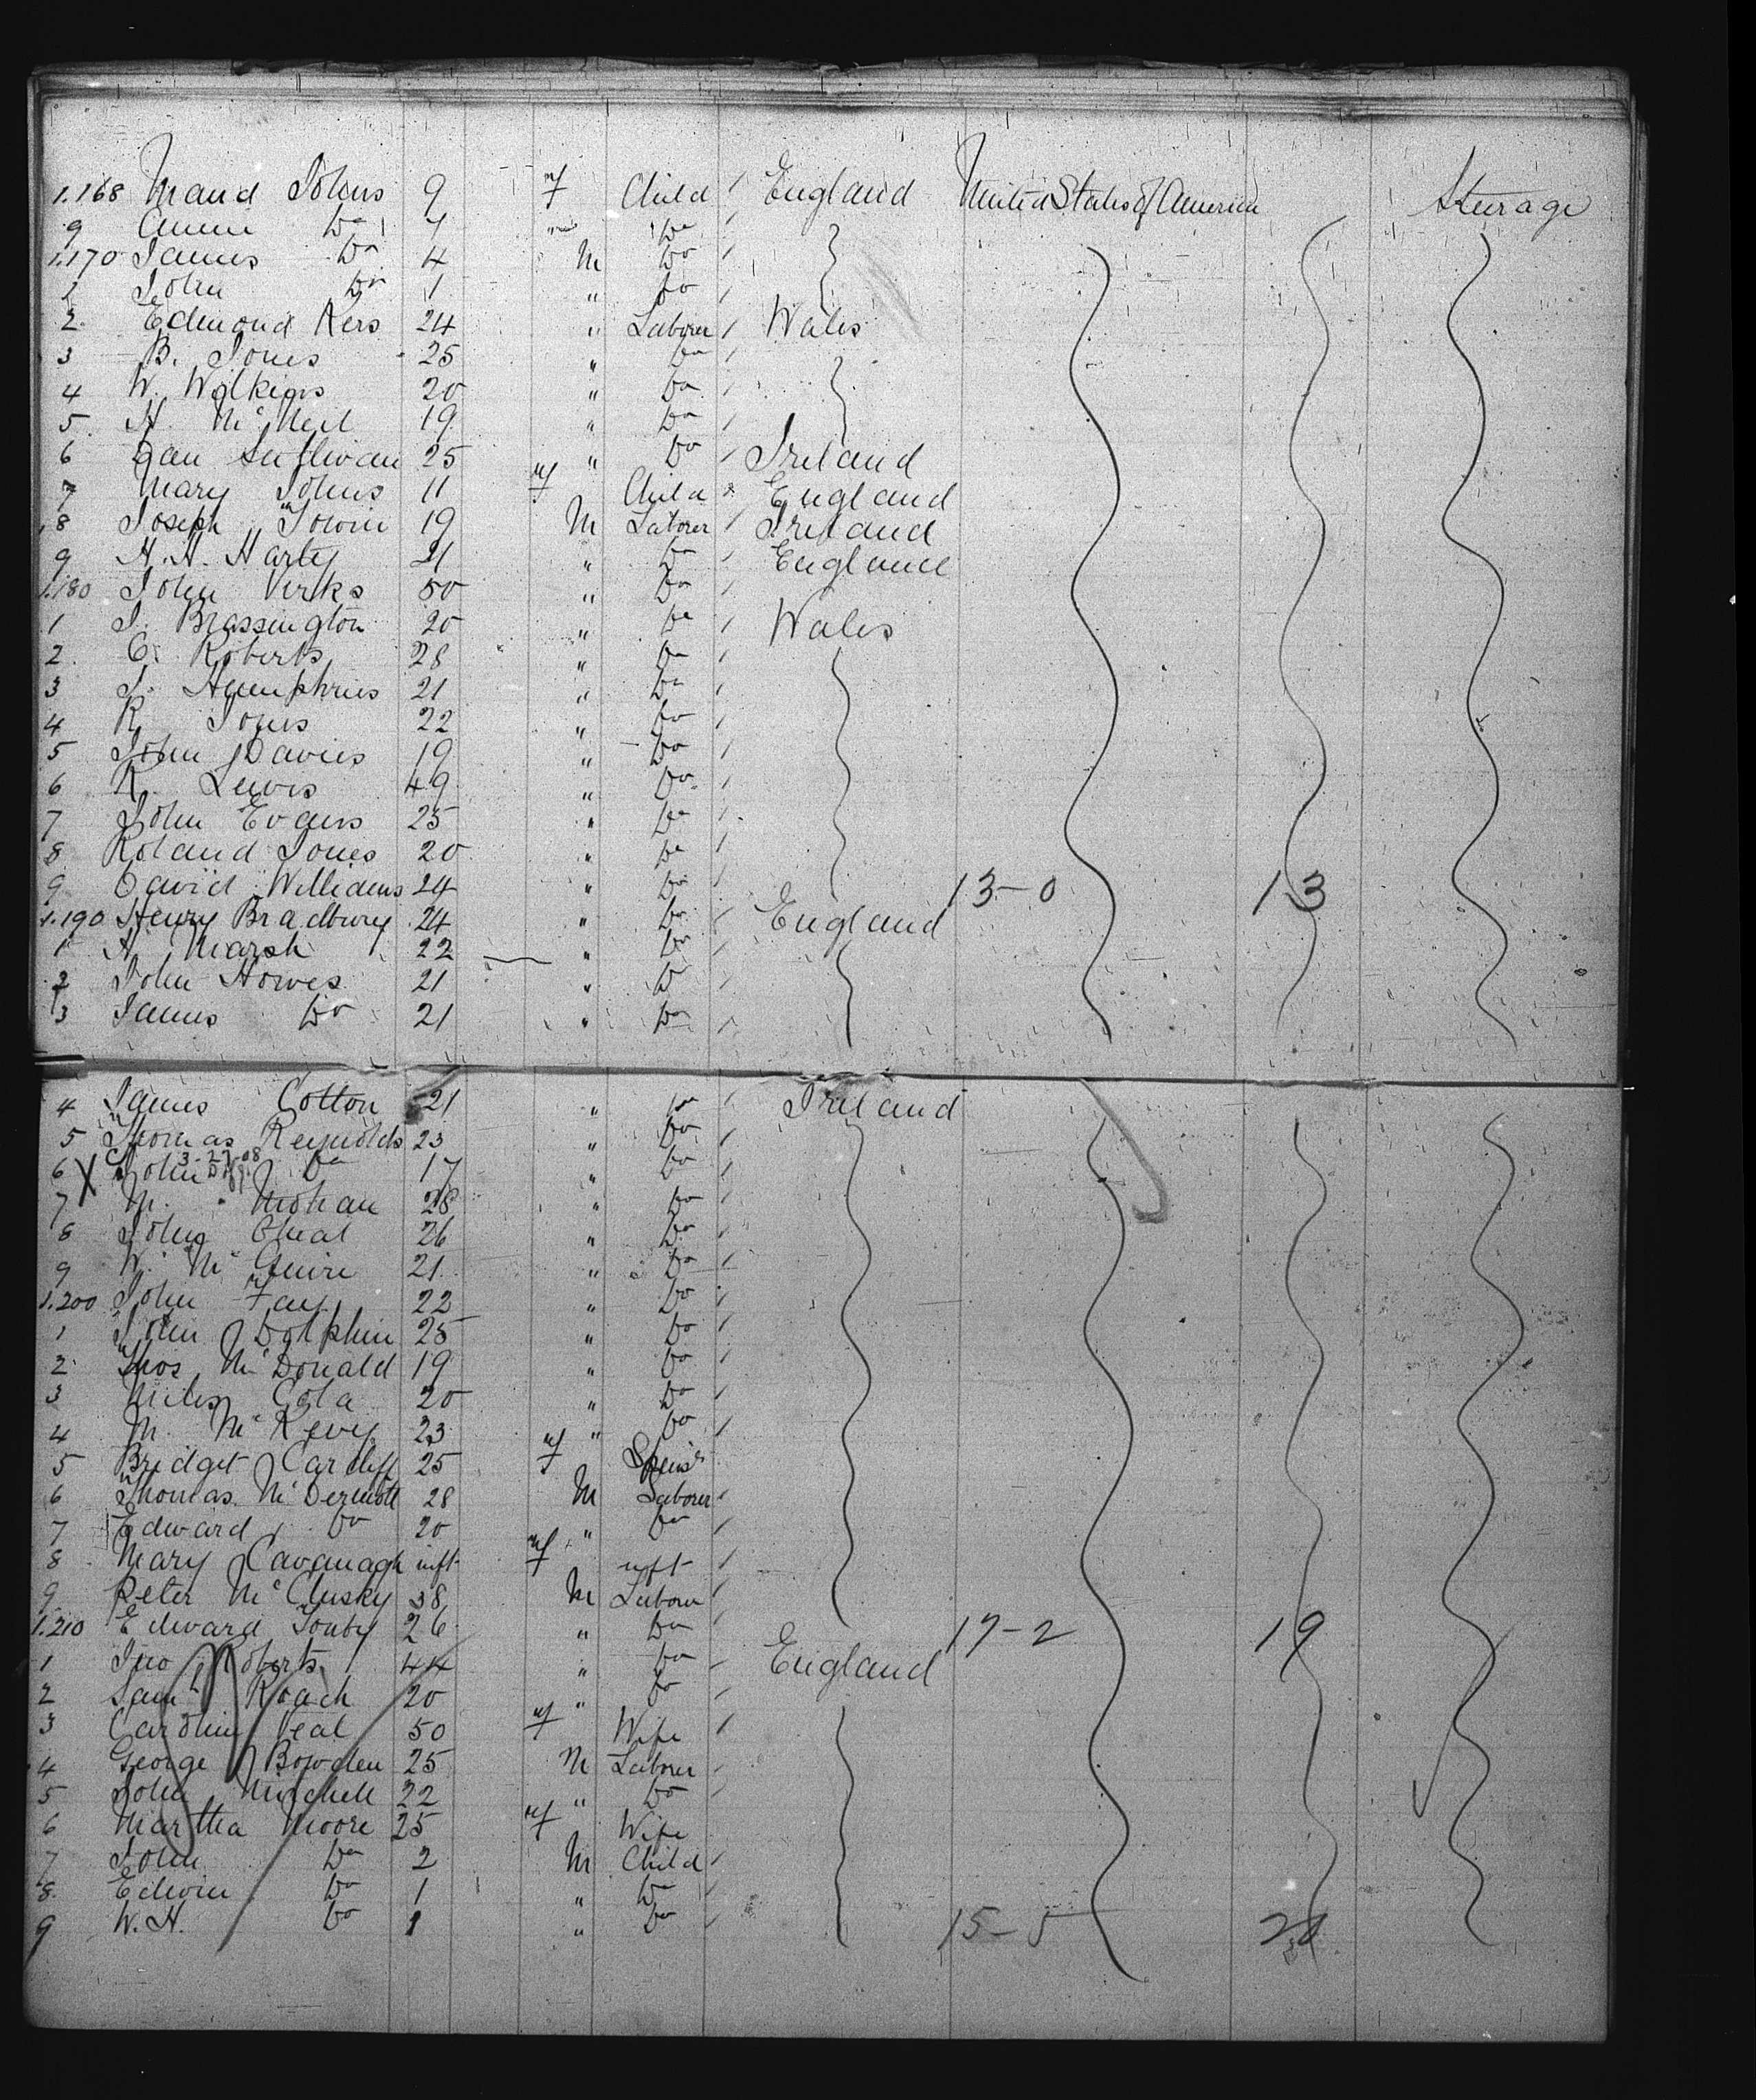 1.168 Maud Johns 9 f Child / England United States of America Steerage
9 Annie Do 7 " Do /
1.170 James Do 4 M Do /
1 John Do 1 " Do /
2 Edmond Kers 24 " Laborer / Wales
3 B. Jones 25 " Do /
4 W. Wilkins 20 " Do /
5 H. McNeil 19 " Do /
6 Dan Sullivan 25 " Do / Ireland
7 Mary Johns 11 f Child England
8 Joseph 19 M Laborer / Ireland
9 H. H. Harty 21 " Do / England
1.180 John Virks 50 " Do /
1 J. Brassington 20 " Do / Wales
2 E. Roberts 28 " Do /
3 J. Humphries 21 " Do /
4 R. Jones 22 " Do /
5 John Davies 19 " Do /
6 R. Lewis 49 " Do /
7 John Evans 25 " Do /
8 Roland Jones 20 " Do /
9 David Williams 24 " Do / 13-0 13
1.190 Henry Bradbury 24 " Do / England
1 A. Marsh 22 " Do /
2 John Howes 21 " Do /
3 James Do 21 " Do /
4 James Cotton 21 " Do / Ireland
5 Thomas Reynolds 23 " Do /
3-27-08
6 X John Do 17 " Do /
7 M. Mohan 28 " Do /
8 John Oneal 26 " Do /
9 W. McGuire 21 " Do /
1.200 John Fay 22 " Do /
1 John Dolphin 25 " Do /
2 Thos McDonald 19 " Do /
3 Miles Cola 20 " Do /
4 M. McKevy 23 " Do /
5 Bridget Carcliff 25 f Spinsr
6 Thomas McDermott 28 M Laborer /
7 Edward Do 20 " Do /
8 Mary Cavanagh inft f inft /
9 Peter McClusky 38 M Laborer /
1.210 Edward 26 " Do / 17-2 19
1 Jno Roberts 44 " Do / England
2 Saml Roach 20 " Do /
3 Caroline Veal 50 f Wife /
4 George Bowden 25 M Laborer /
5 John Mitchell 22 " Do /
6 Martha Moore 25 f Wife
7 John Do 2 M Child /
8 Edwin Do 1 " Do /
9 W. H. Do 1 " Do / 15-5 21